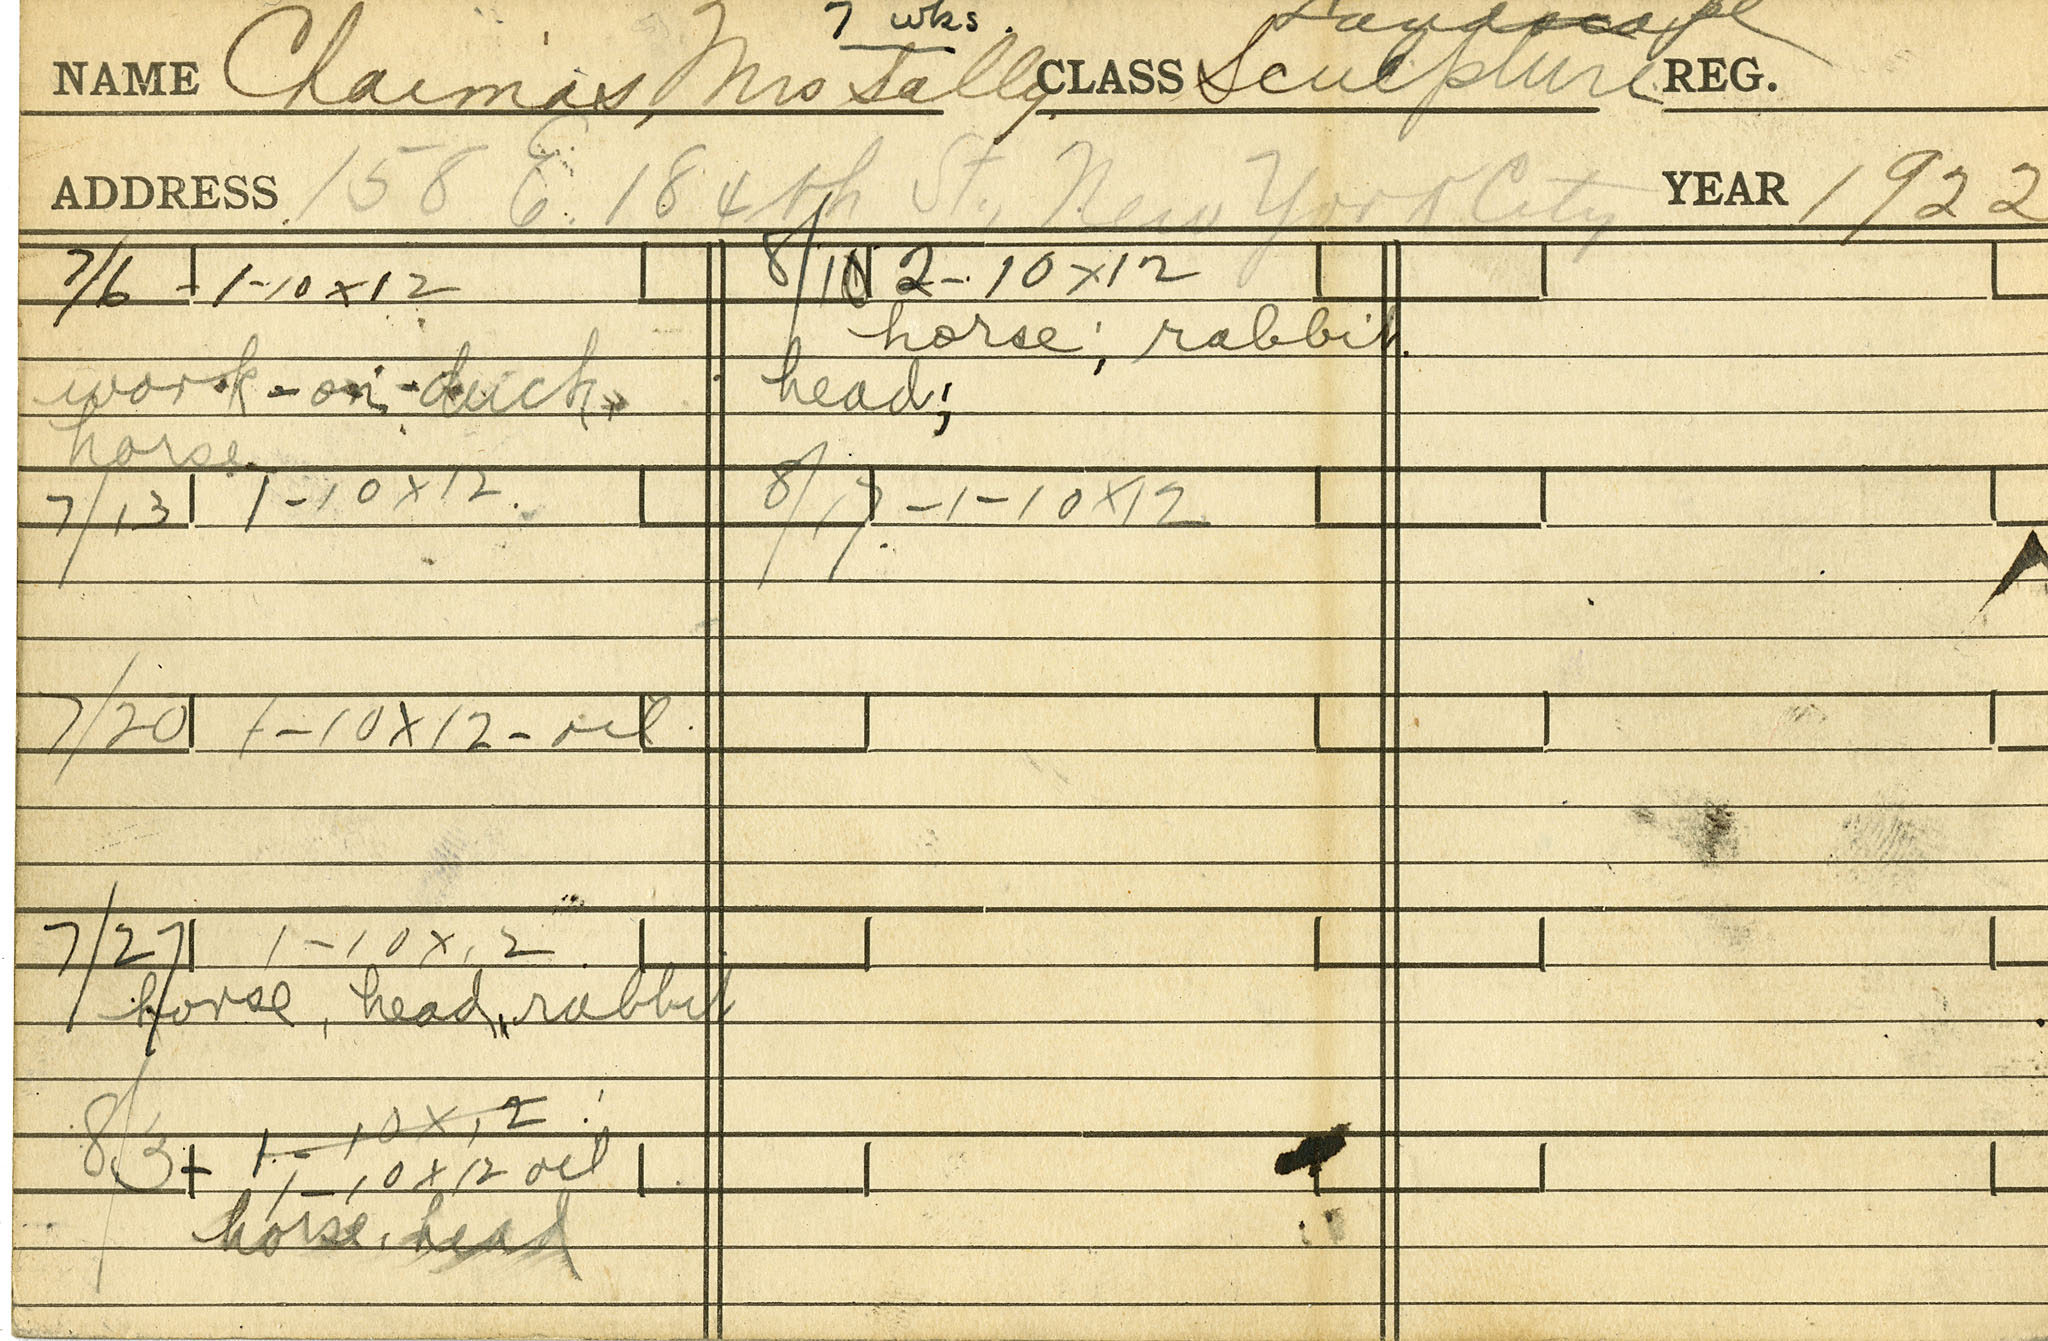 7 wks. Landscape
NAME Chaimas, Mrs Sally CLASS Sculpture REG.
ADDRESS 158 E. 184th St., New York City YEAR 1922
7/6 - 1-10x12
work-on-duck,
horse.
7/13 1-10x12.
7/20 1-10x12-oil
7/27 1-10x12
horse, head, rabbit
1-10x12
8/3 - 1-10x12 oil
horse, head
8/10 2-10x12
horse; rabbit
head;
8/17 -1-10x12